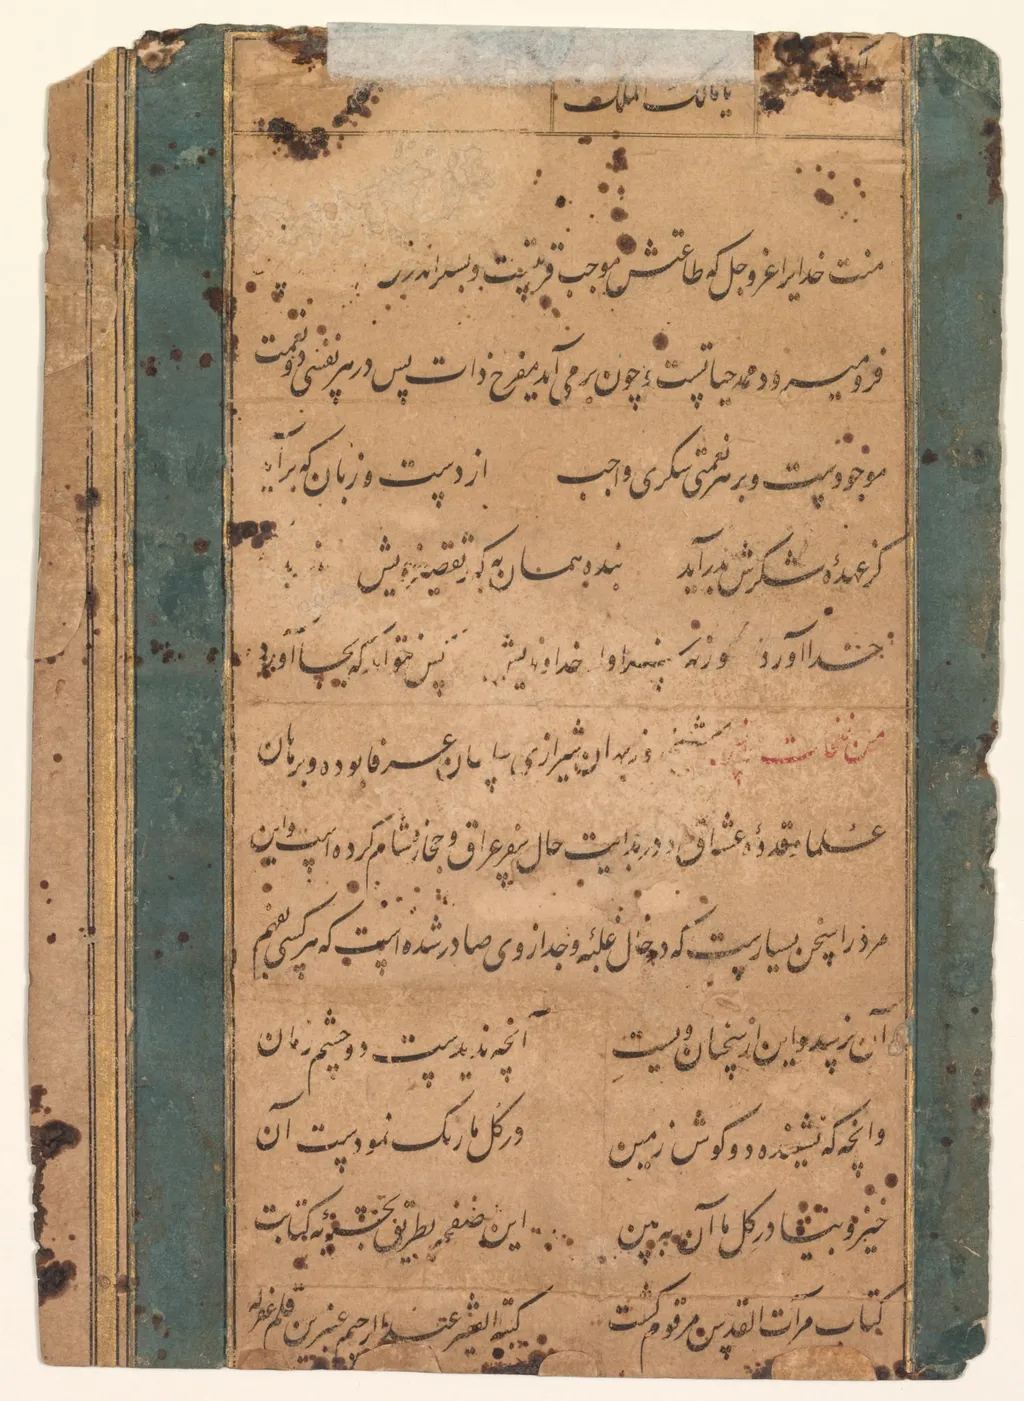 یا مالک الملک
منت خدایرا عزوجل که طاعتش موجب قربتست و بسر اندرش
فرو میرود ممد حیاتست و چون بر می آید مفرح ذات پس در هر نفسی دو نعمت
موجودست و بر هر نعمتی شکری واجب از دست و زبان که برآید
کز عهدهٔ شکرش بدر آید بنده همان به که ز تقصیر خویش
خدا آورد ورنه سزاوار خداوندیش کس نتواند که بجا آورد
من نفحات شیخ روزبهان شیرازی سلطان عرفا بوده و برهان
علما و قدوهٔ عشاق و در بدایت حال سفر عراق و حجاز و شام کرده است و این
مرد را سخن بسیارست که در حال غلبهٔ وجد از وی صادر شده است که هر کسی بفهم
آن نرسد و این از سخنان ویست آنچه ندیدست دو چشم زمان
وانچه که نشنیده دو گوش زمین در گل ما رنگ نمودست آن
خیز و بیا در گل ما آن ببین این صفحه بطریق تجربه کتابت
کتاب مرآت القدس مرقوم گشت کتبه الفقیر عبدالرحیم عنبرین قلم غفرله